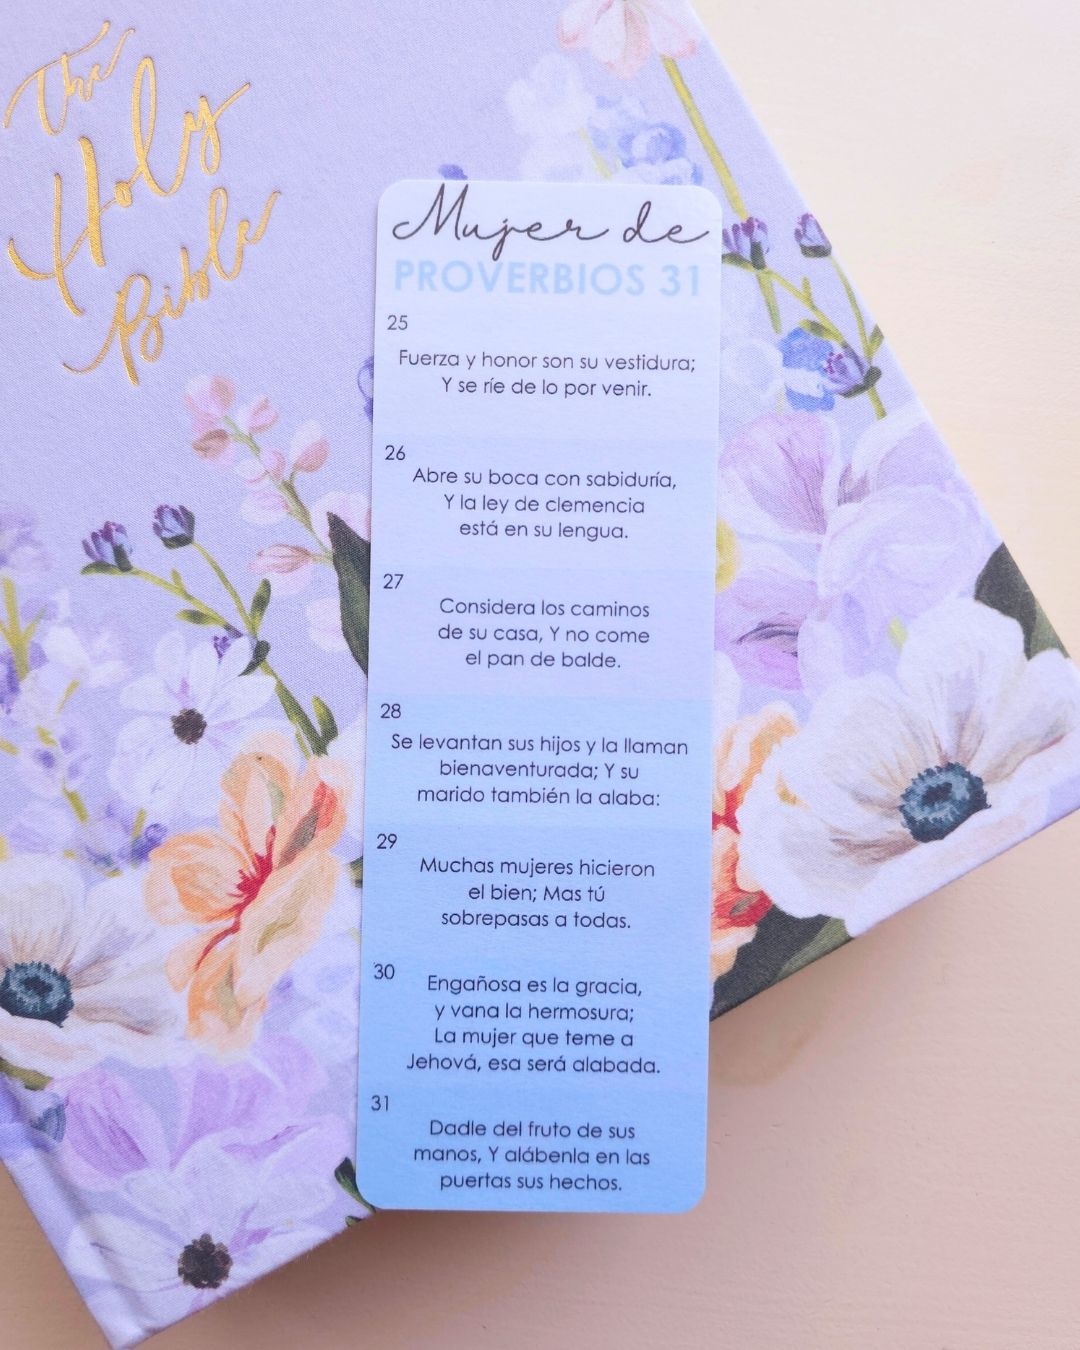 The
Holy
Bible
Mujer de
PROVERBIOS 31
25
Fuerza y honor son su vestidura;
Y se ríe de lo por venir.
26
Abre su boca con sabiduría,
Y la ley de clemencia
está en su lengua.
27
Considera los caminos
de su casa, Y no come
el pan de balde.
28
Se levantan sus hijos y la llaman
bienaventurada; Y su
marido también la alaba:
29
Muchas mujeres hicieron
el bien; Mas tú
sobrepasas a todas.
30
Engañosa es la gracia,
y vana la hermosura;
La mujer que teme a
Jehová, esa será alabada.
31
Dadle del fruto de sus
manos, Y alábenla en las
puertas sus hechos.